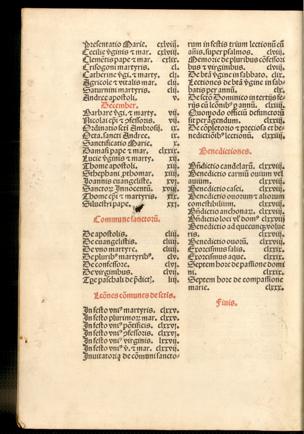 Presentatio Marie. cxlviij.
Cecilie vginis & mar. cxlviij.
Clemētis pape & mar. cxlix.
Crisogoni martyris. cl.
Catherine vgi. & marty. clj.
Agricole & vitalis mar. clij.
Saturnini martyris. clij.
Andree apostoli. v.
December.
Barbare vgi. & mar. vij.
Nicolai epi & ꝯfessoris. viij.
Ordinatio sci Ambrosij. ix.
Octa. sancti Andree. ix.
Sanctificatio Marie. x.
Damasi pape & mar. cxxix.
Lucie vginis & marty. xij.
Thome apostoli. xiij.
Stephani prhomar. xiij.
Ioannis euangeliste. xvj.
Sanctoꝝ Innocentū. xviij.
Thome epi & martyris. xix.
Siluestri pape. xxj.
Commune sanctorū.
De apostolis. clij.
De euangelistis. cliij.
De vno martyre. cliiij.
De pluribꝰ martyribꝰ. clv.
De confessore. clvj.
De virginibus. clvij.
Tpe paschali de pdictꝭ. lvij.
Lectiōes cōmunes de sctis.
In festo vniꝰ martyris. clxxv.
In festo plurimoꝝ mar. clxxv.
In festo vniꝰ pōtificis. clxxvj.
In festo vniꝰ ꝯfessoris. clxxvj.
In festo vniꝰ virginis. clxxvij
In festo vniꝰ v. & mar. clxxvij.
Inuitatoria de cōmuni sancto
rum in festis trium lectionū cū
añis, super psalmos. clviij.
Memorie de pluribus cōfessori
bus & virginibus. clviij.
De btā vgine in sabbato. clix.
Lectiones de btā vgine in sabba
tis per annū. clx.
De scto Dominico in tertijs fe
rijs
Quomodo officiū defunctorū
sit peragendum. clxxij.
De cōpletorio & preciosa et be
Benedictiones.
Bñdictio candelarū. clxxviij.
Benedictio carniū ouium vel
animalium. clxxviij.
Benedictio casei. clxxviij.
Benedictio ouorum & aliorum
comestibilium. clxxviij.
Benedictio anchonaꝝ. clxxviij.
Benedictio loci vel domꝰ clxxviij
Benedictio ad quecunqꝫ volue
ris. clxxx.
Benedictio panis. clxxx.
Exorcismus salis. clxxx.
Exorcismus aque. clxxx.
Septem hore de passione domi
ni. clxxx.
Septem hore de compassione
marie. clxxx.
Finis.